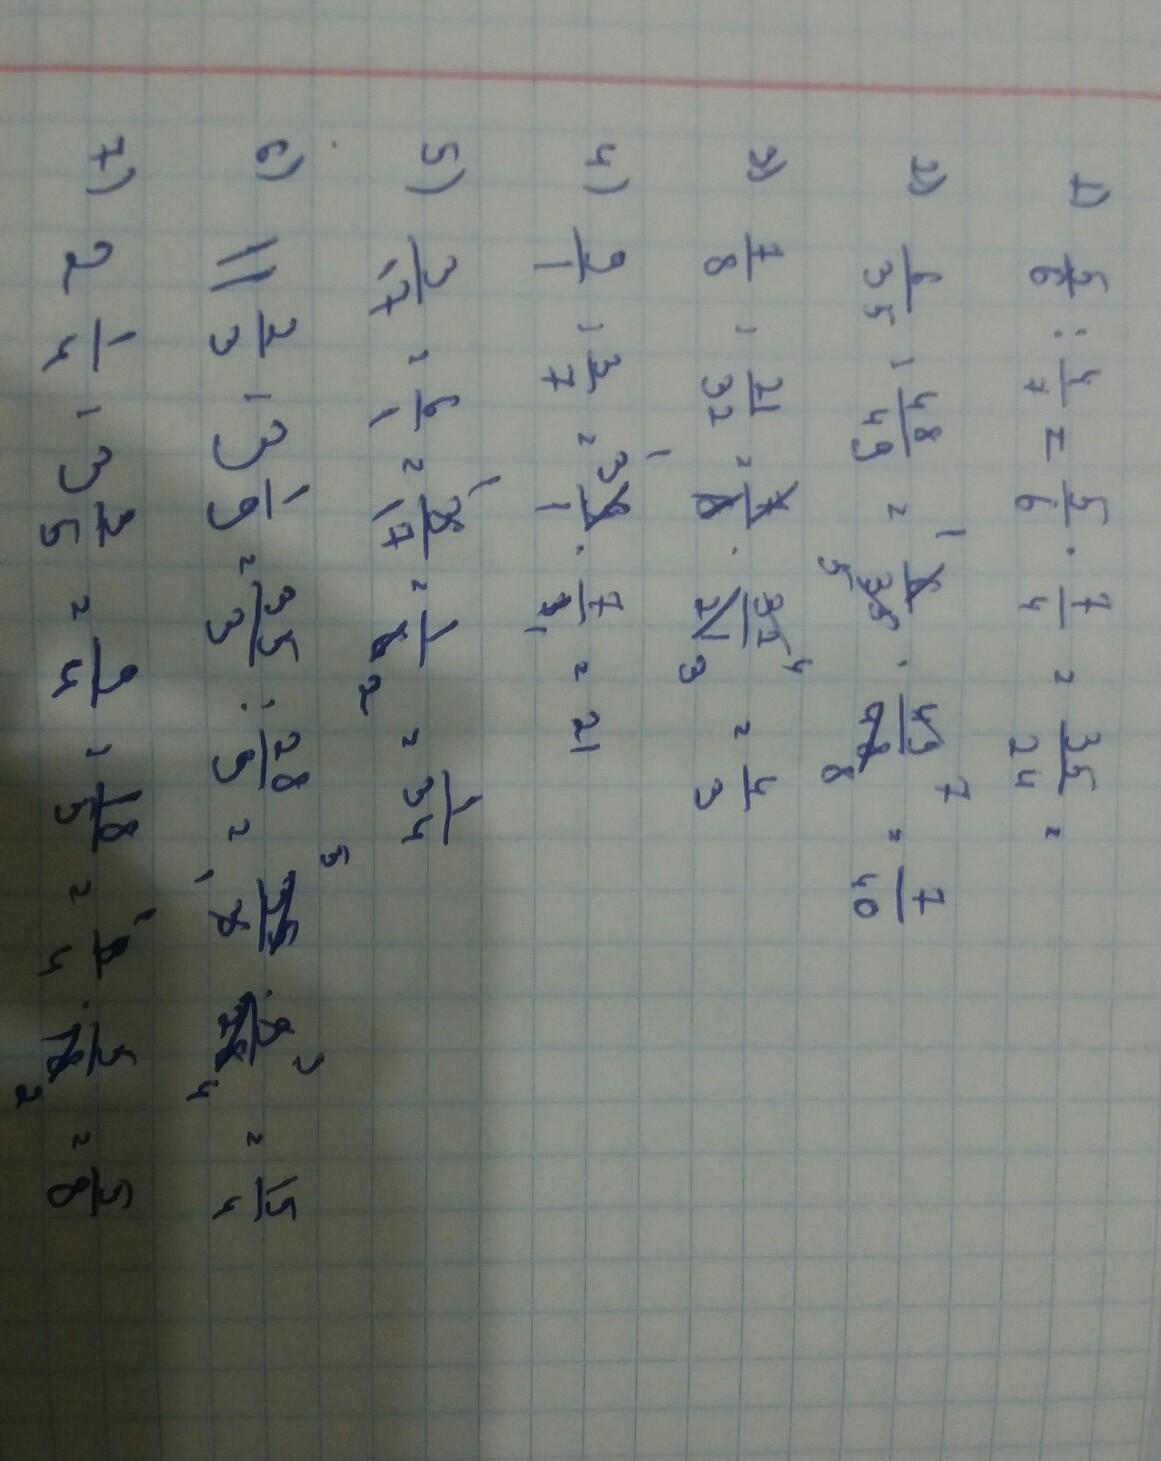 1) 5/6 : 4/7 = 5/6 · 7/4 = 35/24 =
2) 6/35 : 48/49 = 6/35 · 49/48 = 7/40
3) 7/8 : 21/32 = 7/8 · 32/21 = 4/3
4) 9/1 : 3/7 = 9/1 · 7/3 = 21
5) 3/17 : 6/1 = 3/17 · 1/6 = 1/34
6) 11 2/3 : 3 1/9 = 35/3 : 28/9 = 35/3 · 9/28 = 15/4
7) 2 1/4 : 3 3/5 = 9/4 : 18/5 = 9/4 · 5/18 = 5/8